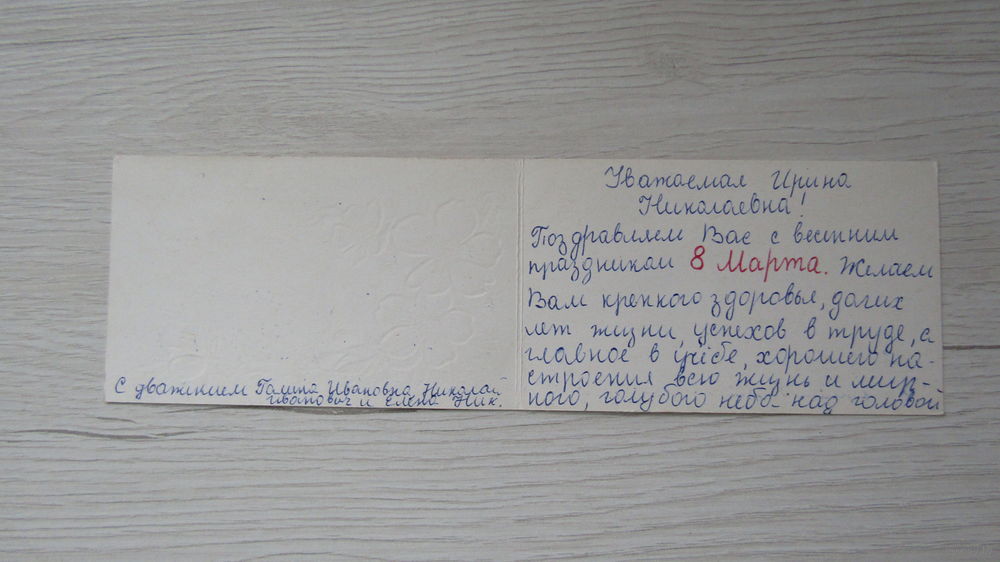 Уважаемая Ирина
Николаевна!
Поздравляем Вас с весенним
праздником 8 Марта. Желаем
Вам крепкого здоровья, долгих
лет жизни, успехов в труде, а
главное в учёбе, хорошего на-
строения всю жизнь и мир-
ного, голубого неба над головой
С уважением Галина Ивановна, Николай
Иванович и Елена Ник.